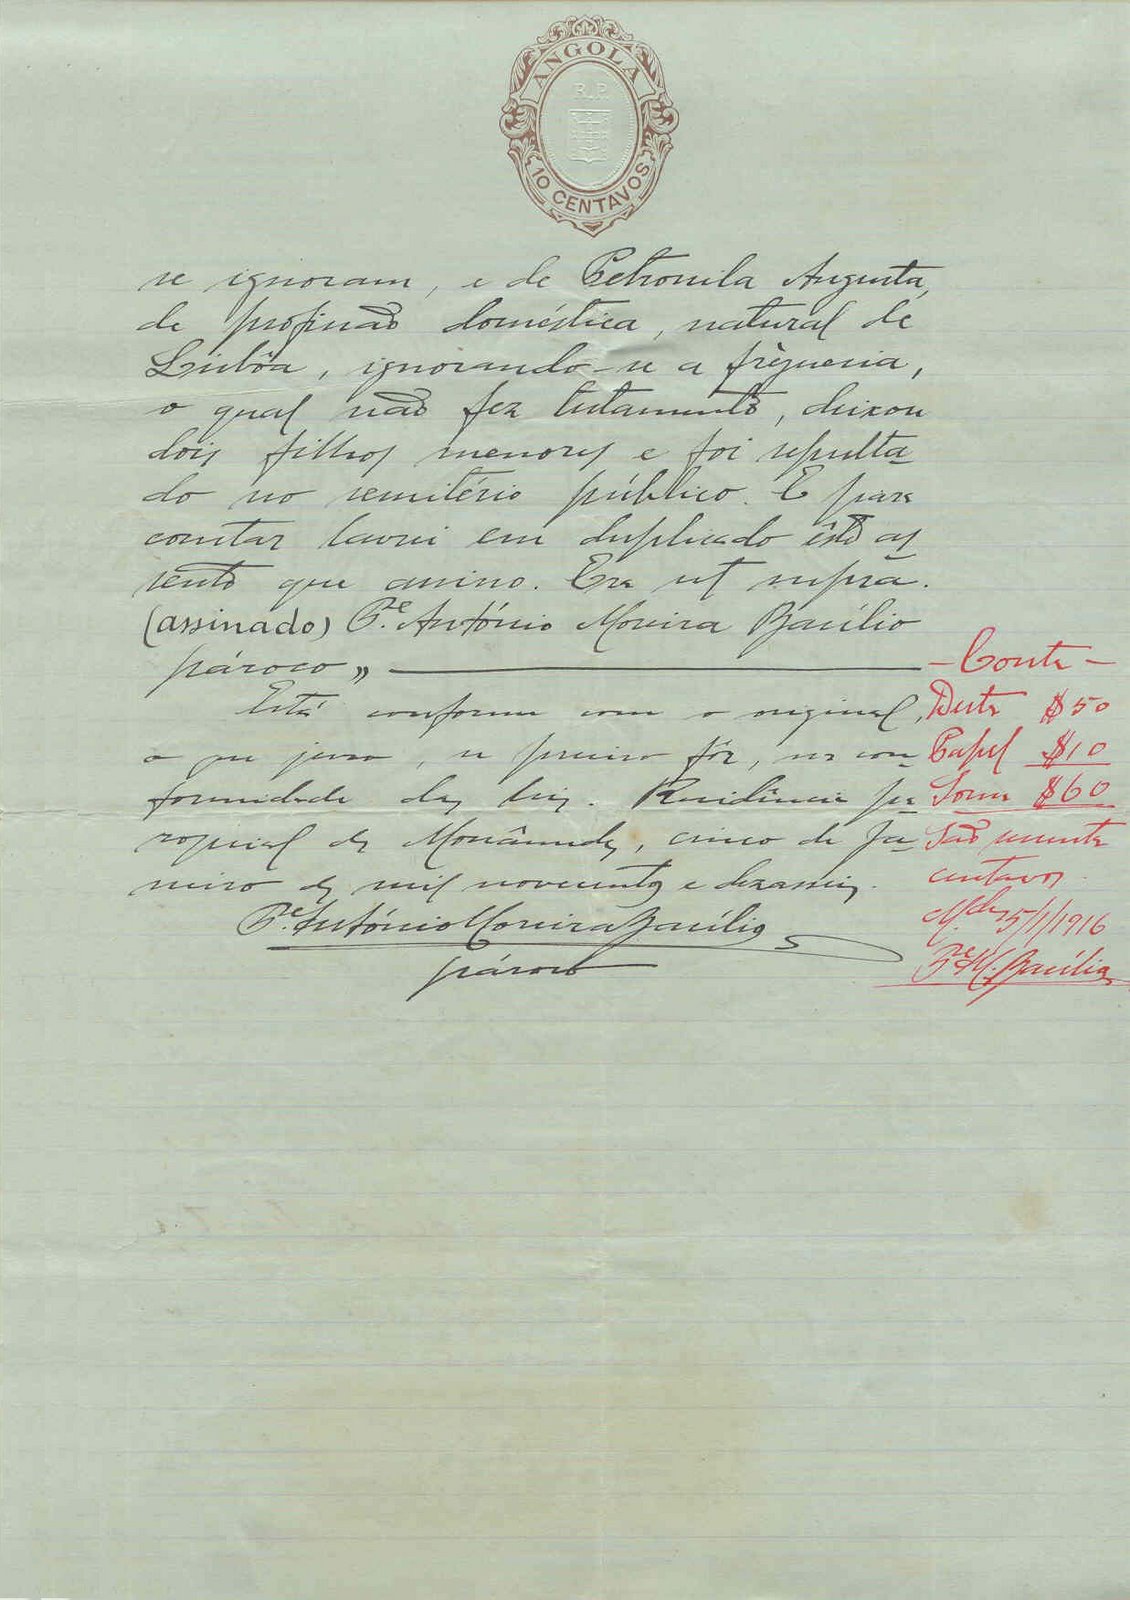 ANGOLA
R.P.
10 CENTAVOS
se ignoram, e de Petronila Augusta,
de profissão doméstica, natural de
Lisbôa, ignorando-se a frèguesia,
o qual não fez testamento, deixou
dois filhos menores e foi sepulta-
do no semitério público. E para
constar lavrei em duplicado êste as
sento que assino. Era ut supra.
(assinado) P.e António Moreira Basílio
pároco„
Está conforme com o original,
o que juro, se preciso fôr, na con-
formidade das leis. Residência pa-
roquial de Mossâmedes, cinco de ja-
neiro de mil novecentos e dezasseis.
P.e António Moreira Basílio
pároco
- Conta -
Desta $50
Papel $10
Soma $60
São sessenta
centavos.
M.des 5/1/1916
P.e M. Basílio